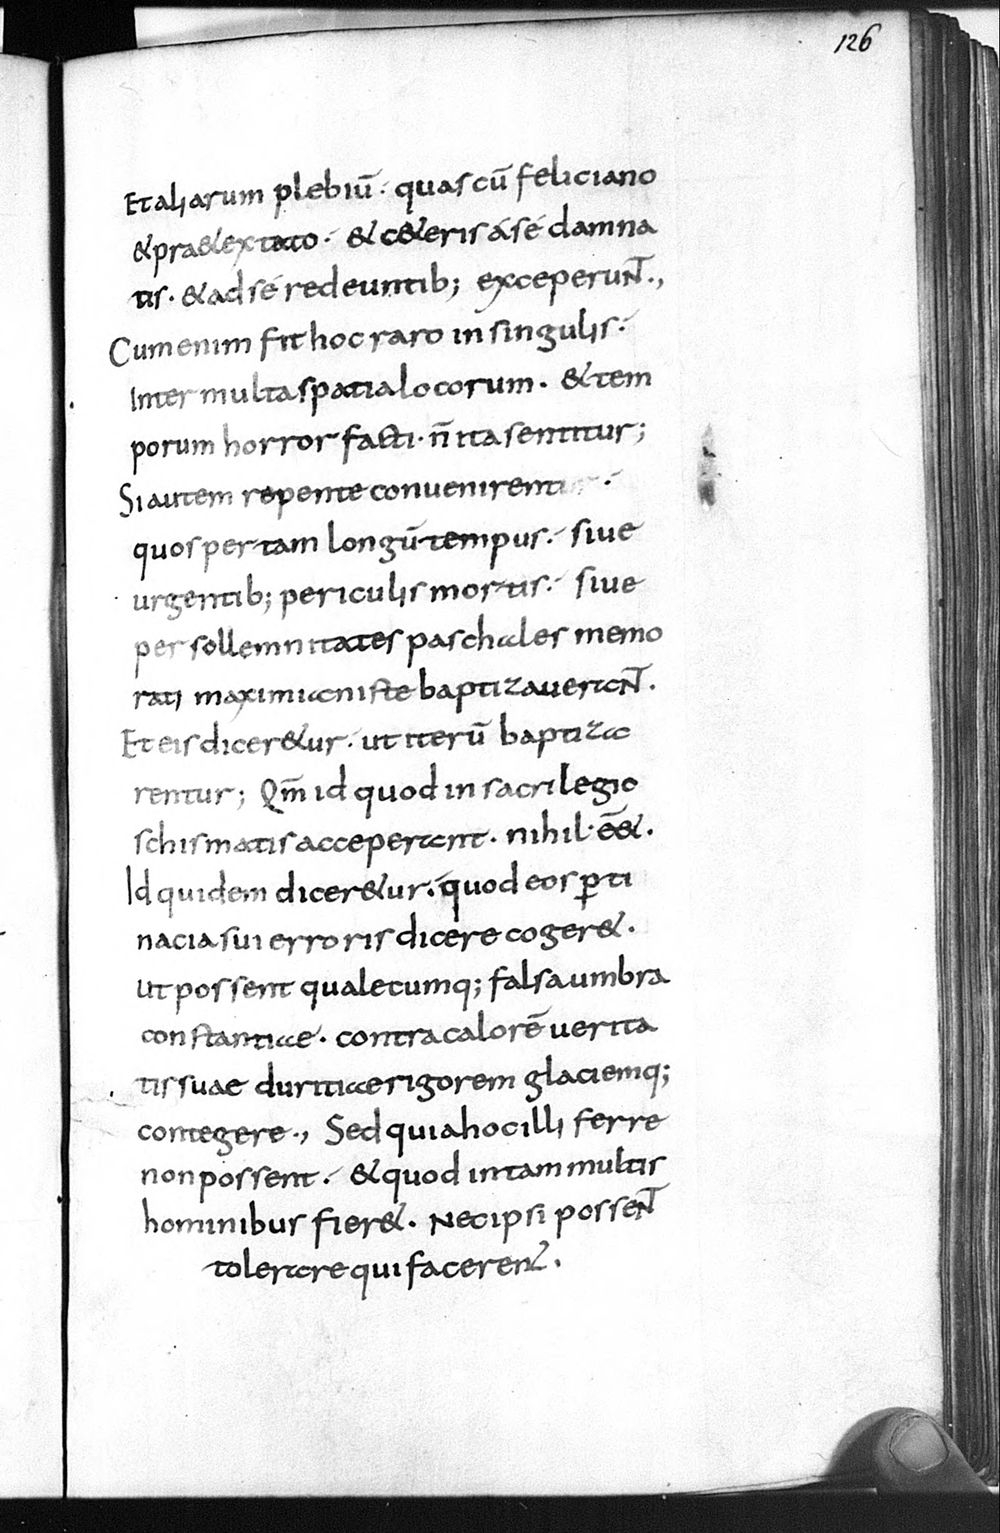 126
Et aliarum plebiū· quas cū feliciano
& pra&extato· & c&eris á sé damna
tis· & ad sé redeuntib; exceperunt.,
Cum enim fit hoc raro in singulis·
Inter multa spatia locorum· & tem
porum horror facti· n̄ ita sentitur;
Si autem repente conuenirentur·
quos per tam longū tempus· siue
urgentib; periculis mortis· siue
per sollemnitates paschales memo
rati maximianiste baptizauerant.
Et eis dicer&ur· ut iterū baptiza
rentur; Qm̄ id quod in sacrilegio
schismatis acceperant· nihil· ē&.
Id quidem dicer&ur· quod eos ꝑti
nacia sui erroris dicere coger&·
ut possent qualecumq; falsa umbra
constantiae· contra calorē uerita
tis suae duritiae rigorem glaciemq;
contegere., Sed quia hoc illi ferre
non possent· & quod in tam multis
hominibus fier&· Nec ipsi possent
tolerare qui facerent.